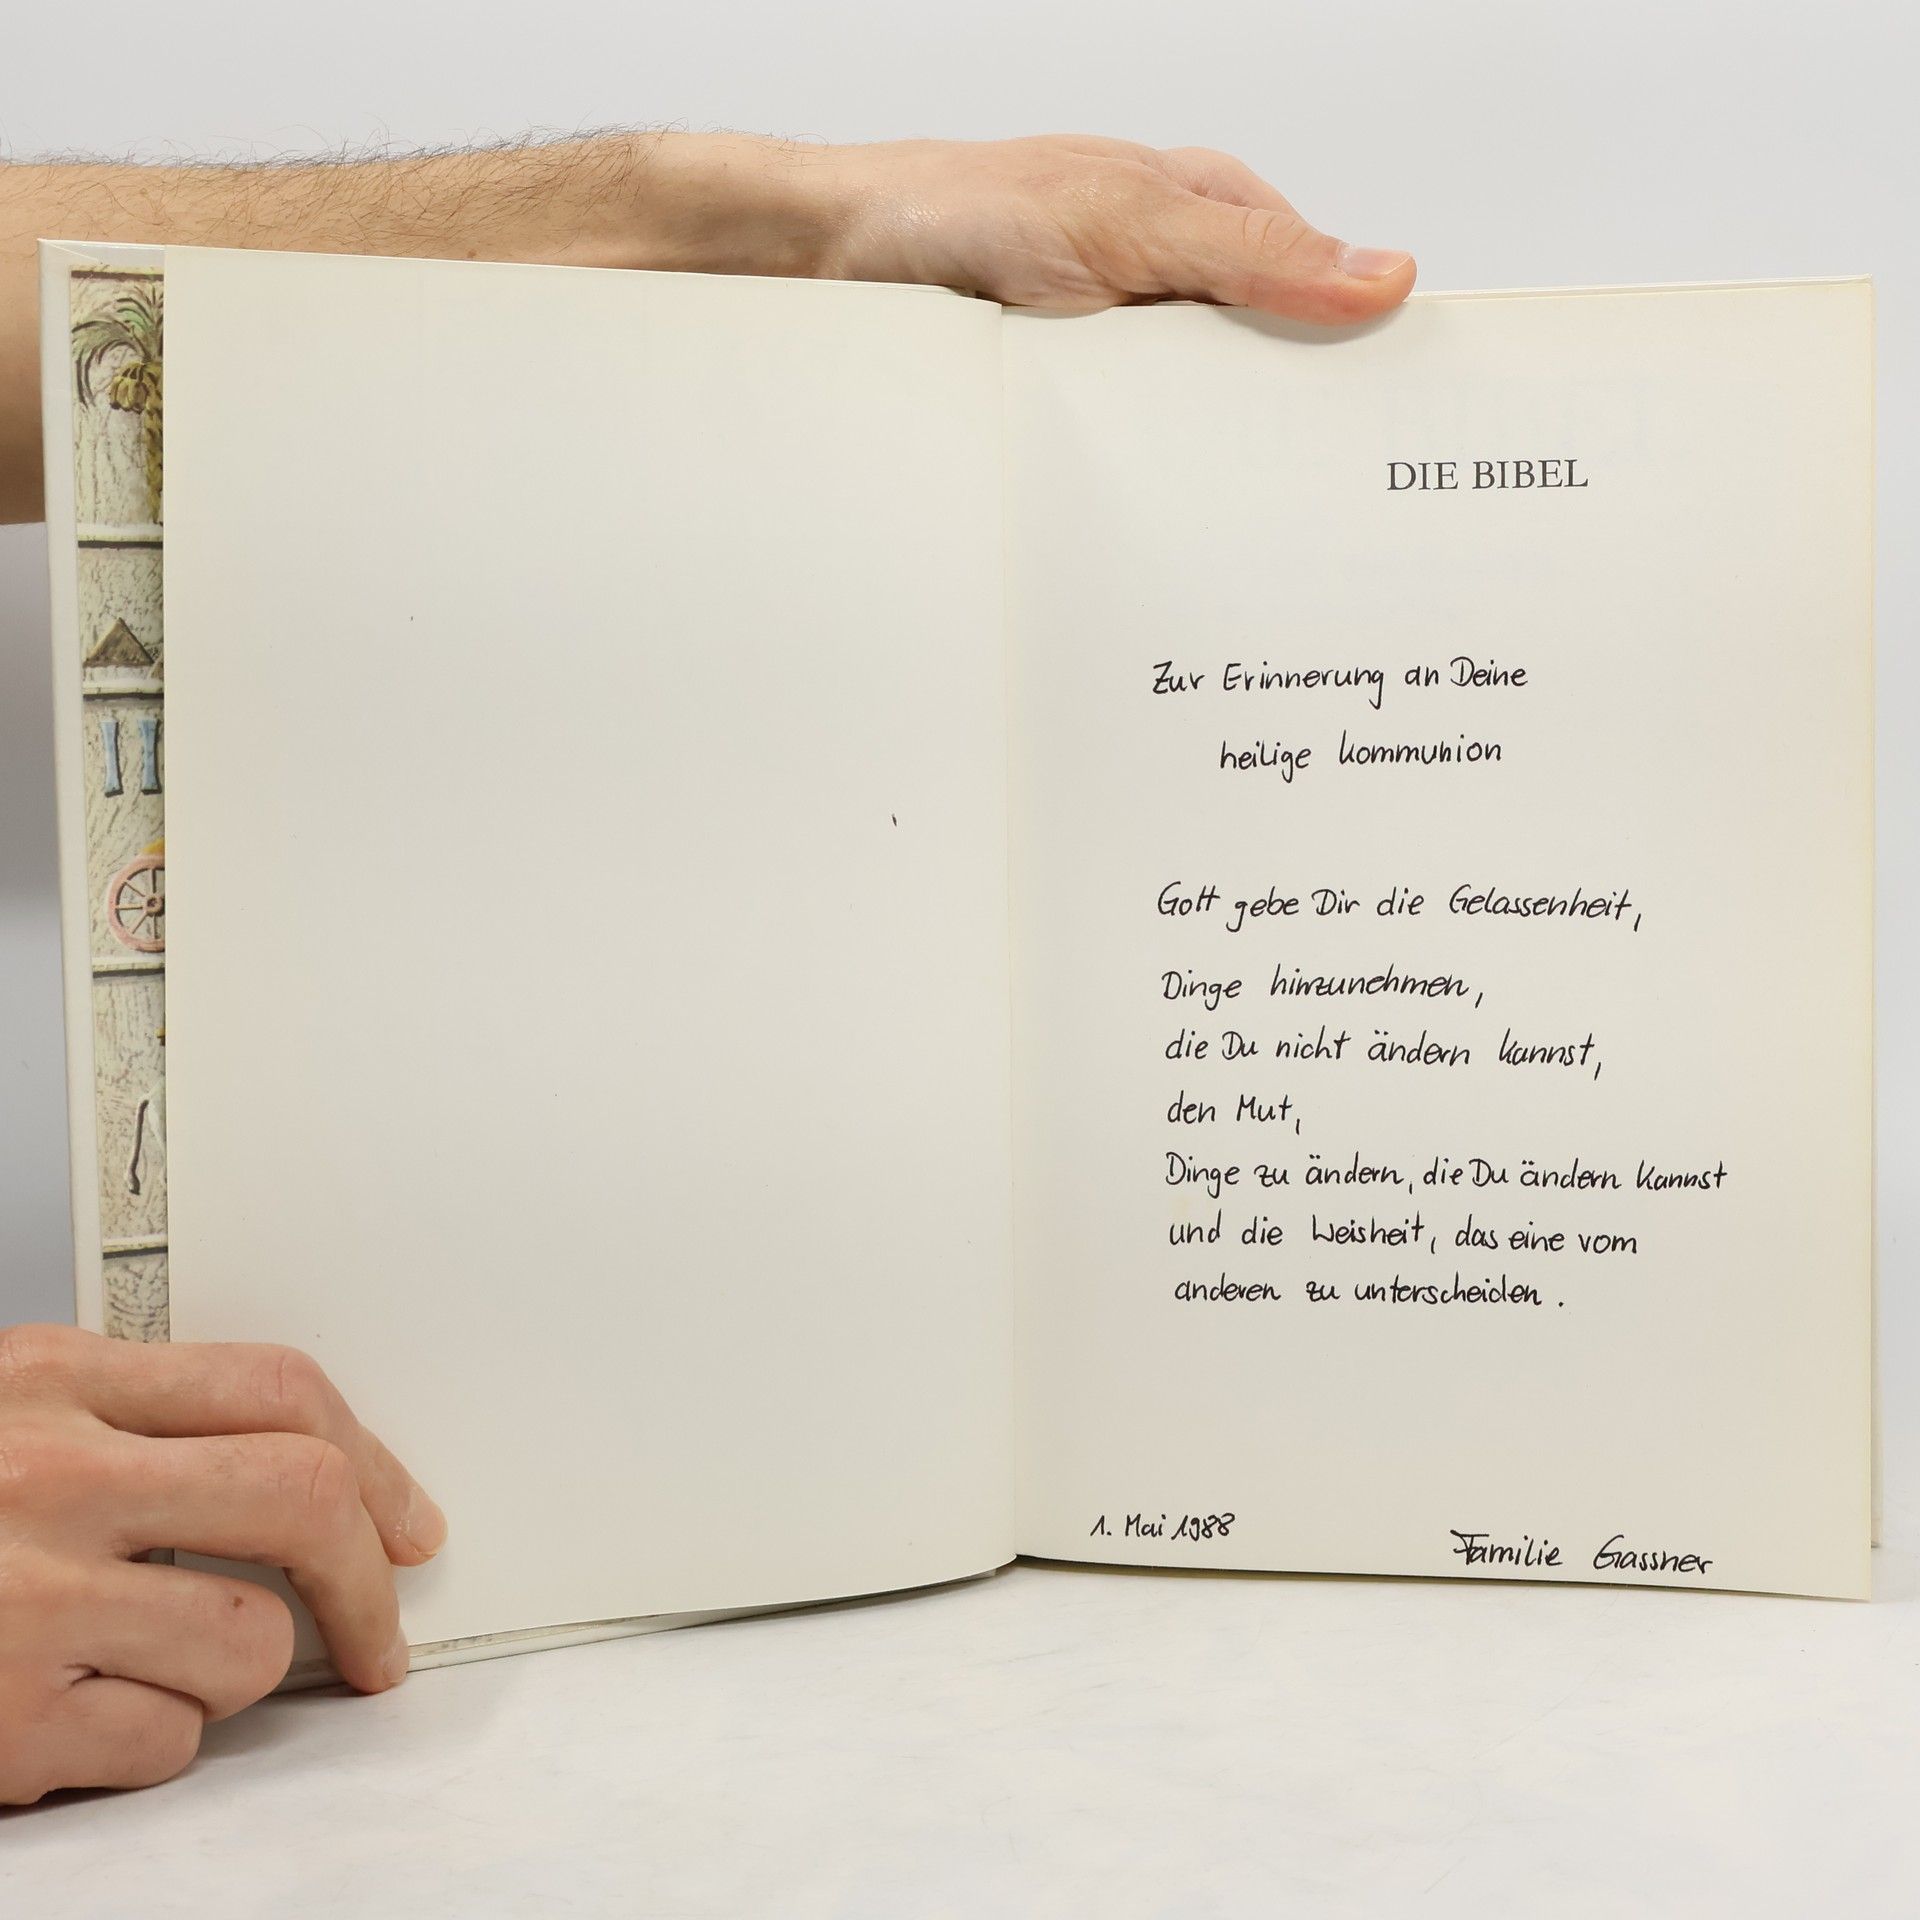 DIE BIBEL
Zur Erinnerung an Deine
heilige Kommunion
Gott gebe Dir die Gelassenheit,
Dinge hinzunehmen,
die Du nicht ändern kannst,
den Mut,
Dinge zu ändern, die Du ändern kannst
und die Weisheit, das eine vom
anderen zu unterscheiden.
1. Mai 1988
Familie Gassner